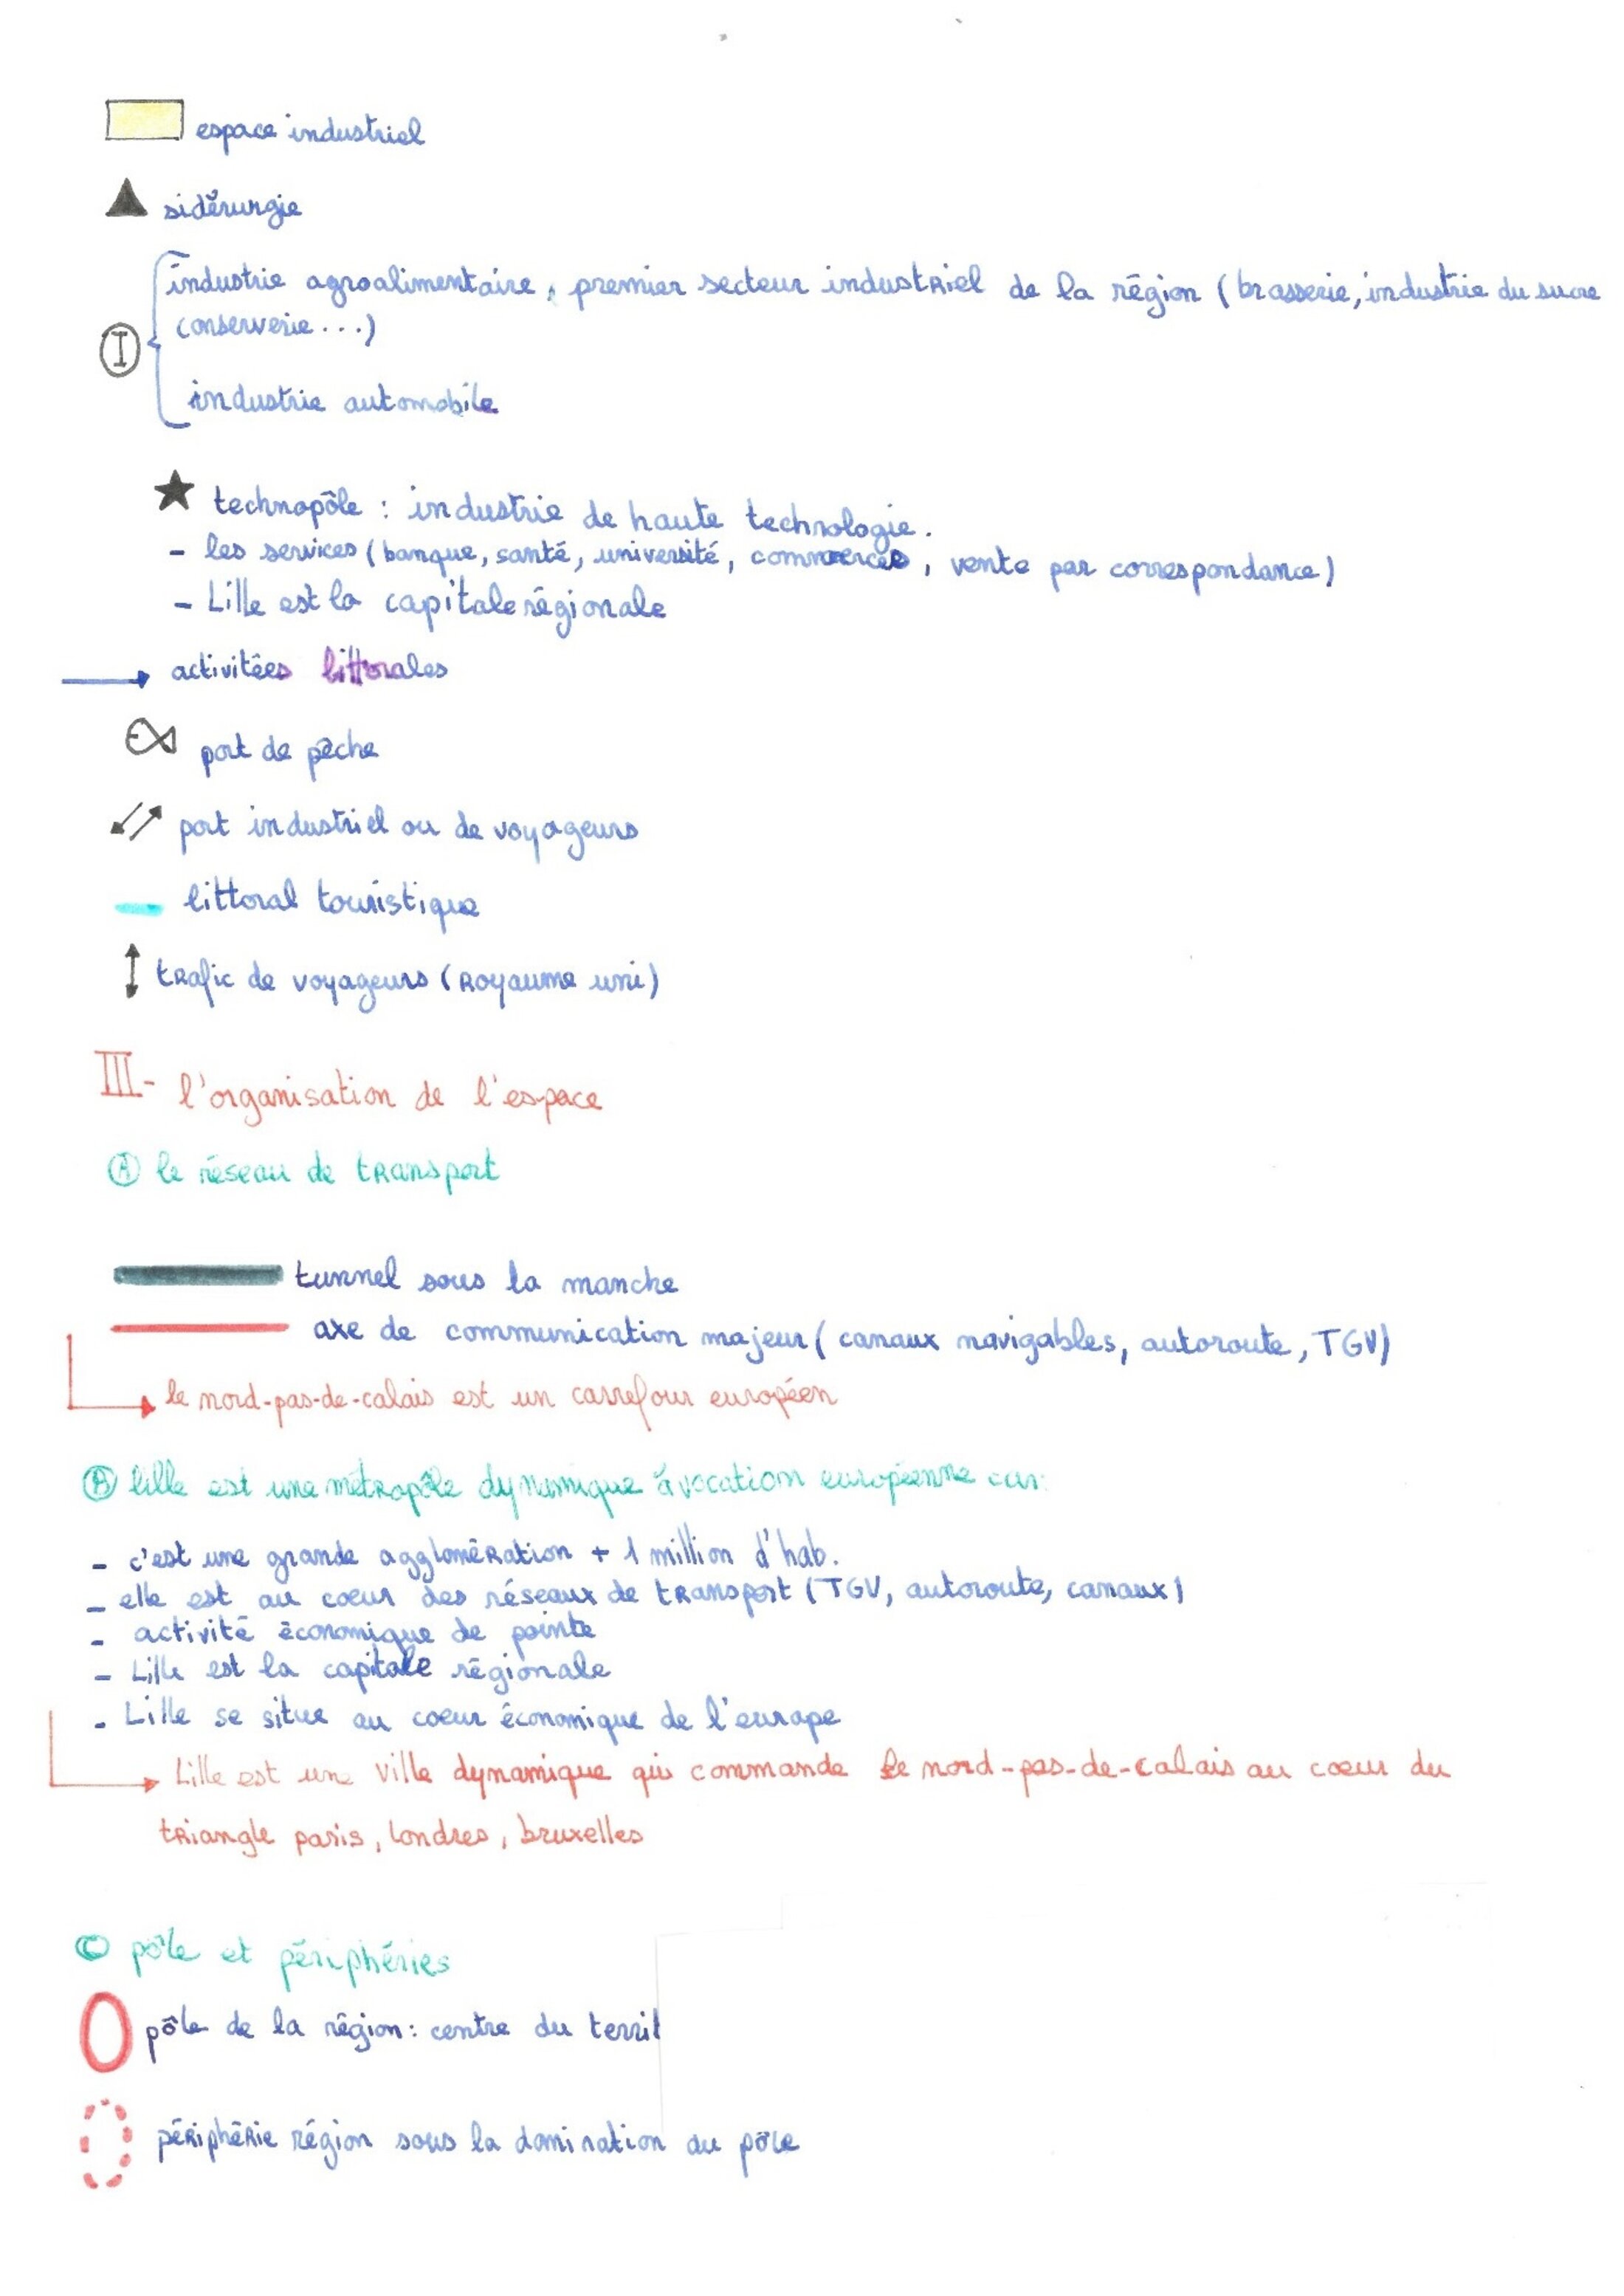 espace industriel
sidérurgie
industrie agroalimentaire, premier secteur industriel de la région (brasserie, industrie du sucre
conserverie...)
I
industrie automobile
technopôle : industrie de haute technologie.
- les services (banque, santé, université, commerces, vente par correspondance)
- Lille est la capitale régionale
activitées littorales
port de pêche
port industriel ou de voyageurs
littoral touristique
trafic de voyageurs (Royaume uni)
III- l'organisation de l'espace
A le réseau de transport
tunnel sous la manche
axe de communication majeur (canaux navigables, autoroute, TGV)
le nord-pas-de-calais est un carrefour européen
B lille est une métropôle dynamique à vocation européenne car:
- c'est une grande agglomération + 1 million d'hab.
- elle est au coeur des réseaux de transport (TGV, autoroute, canaux)
- activité économique de pointe
- Lille est la capitale régionale
- Lille se situe au coeur économique de l'europe
Lille est une ville dynamique qui commande le nord-pas-de-calais au coeur du
triangle paris, londres, bruxelles
C pôle et périphéries
pôle de la région: centre du territ
périphérie région sous la domination du pôle